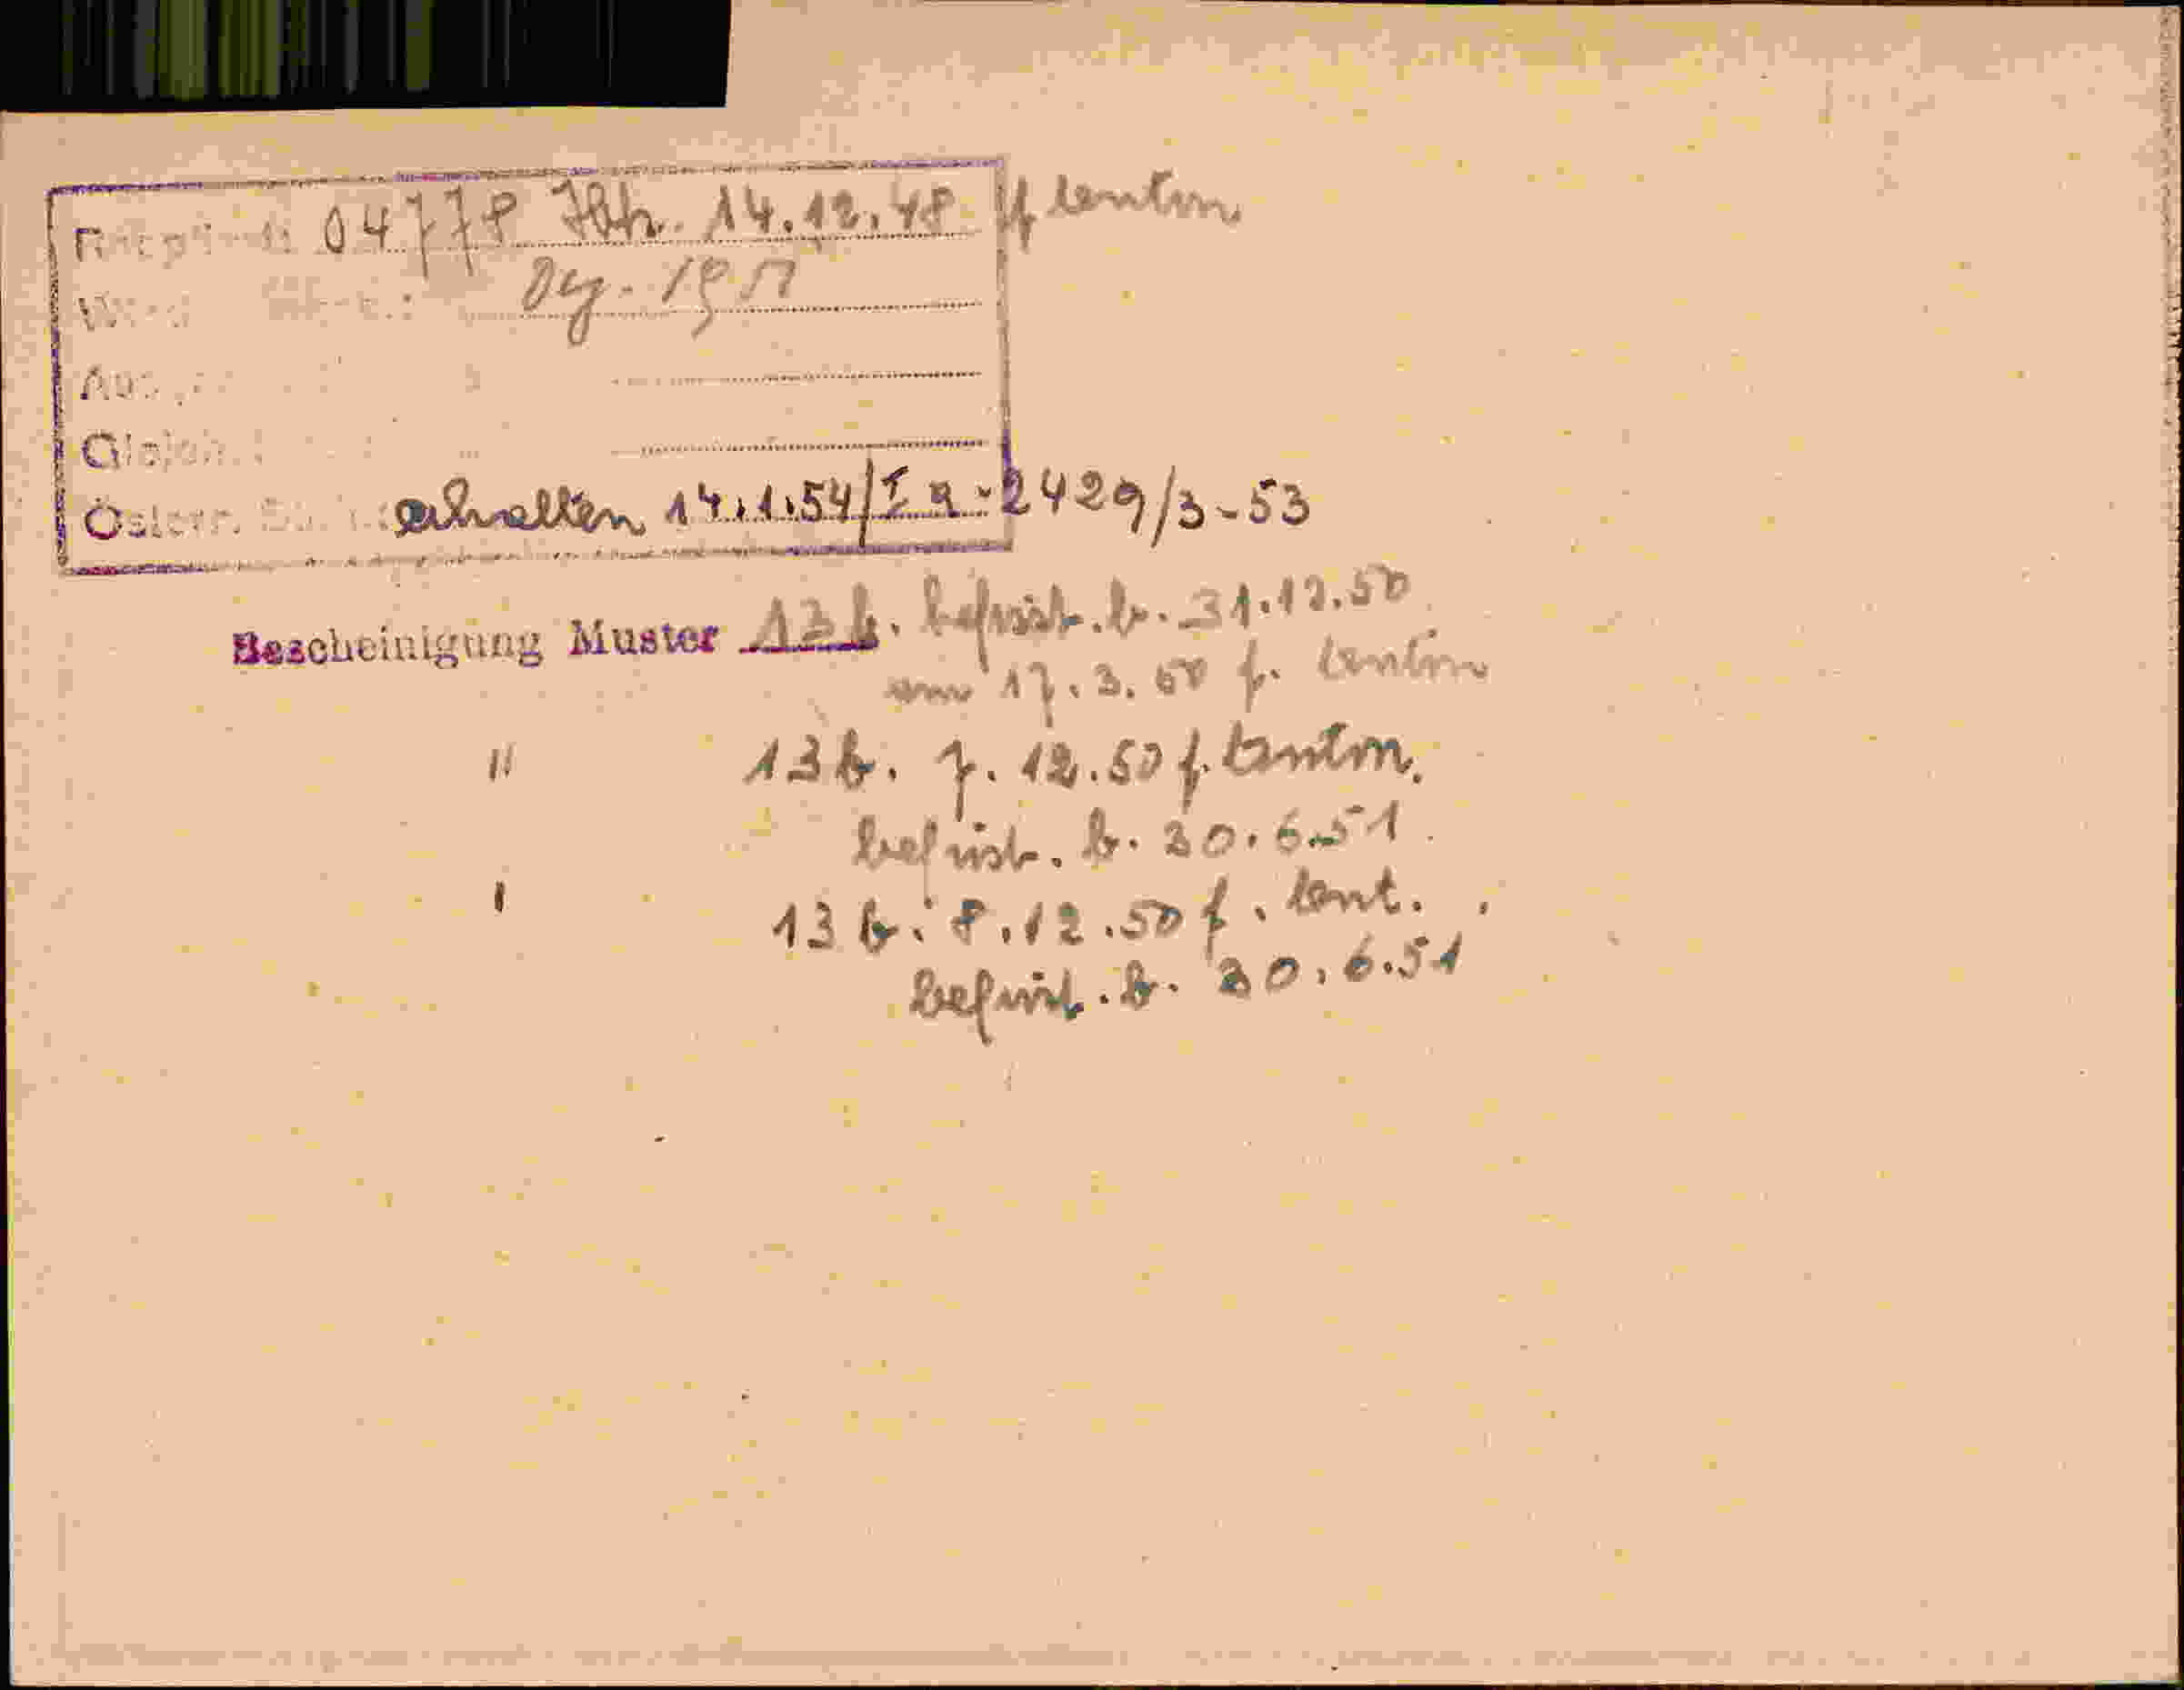 04778 Jbk. 14.12.48 f lentm
Dez. 1951
Österr. erhalten 14.1.54/I a - 2429/3-53
Bescheinigung Muster 13b. befrist. b. 31.12.50
am 17.3.50 f. lentm
" 13b. 7.12.50 f. lentm.
befrist. b. 30.6.51
" 13b. 8.12.50 f. lent.
befrist. b. 30.6.51